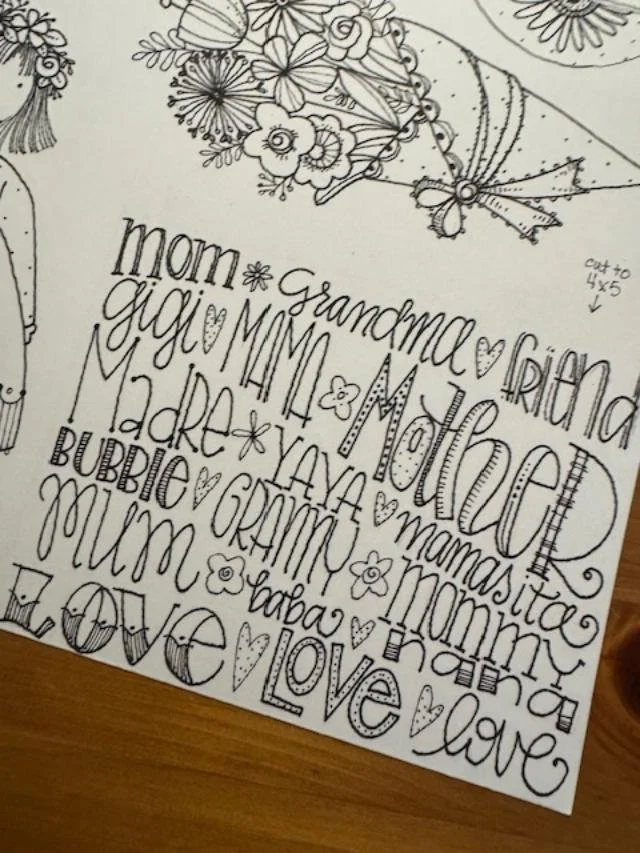 cut to
4x5
mom Grandma friend
gigi MAMA Mother
Madre YAYA
BUBBIE GRAMMY mamasita
mum baba mommy
nana
LOVE LOVE love